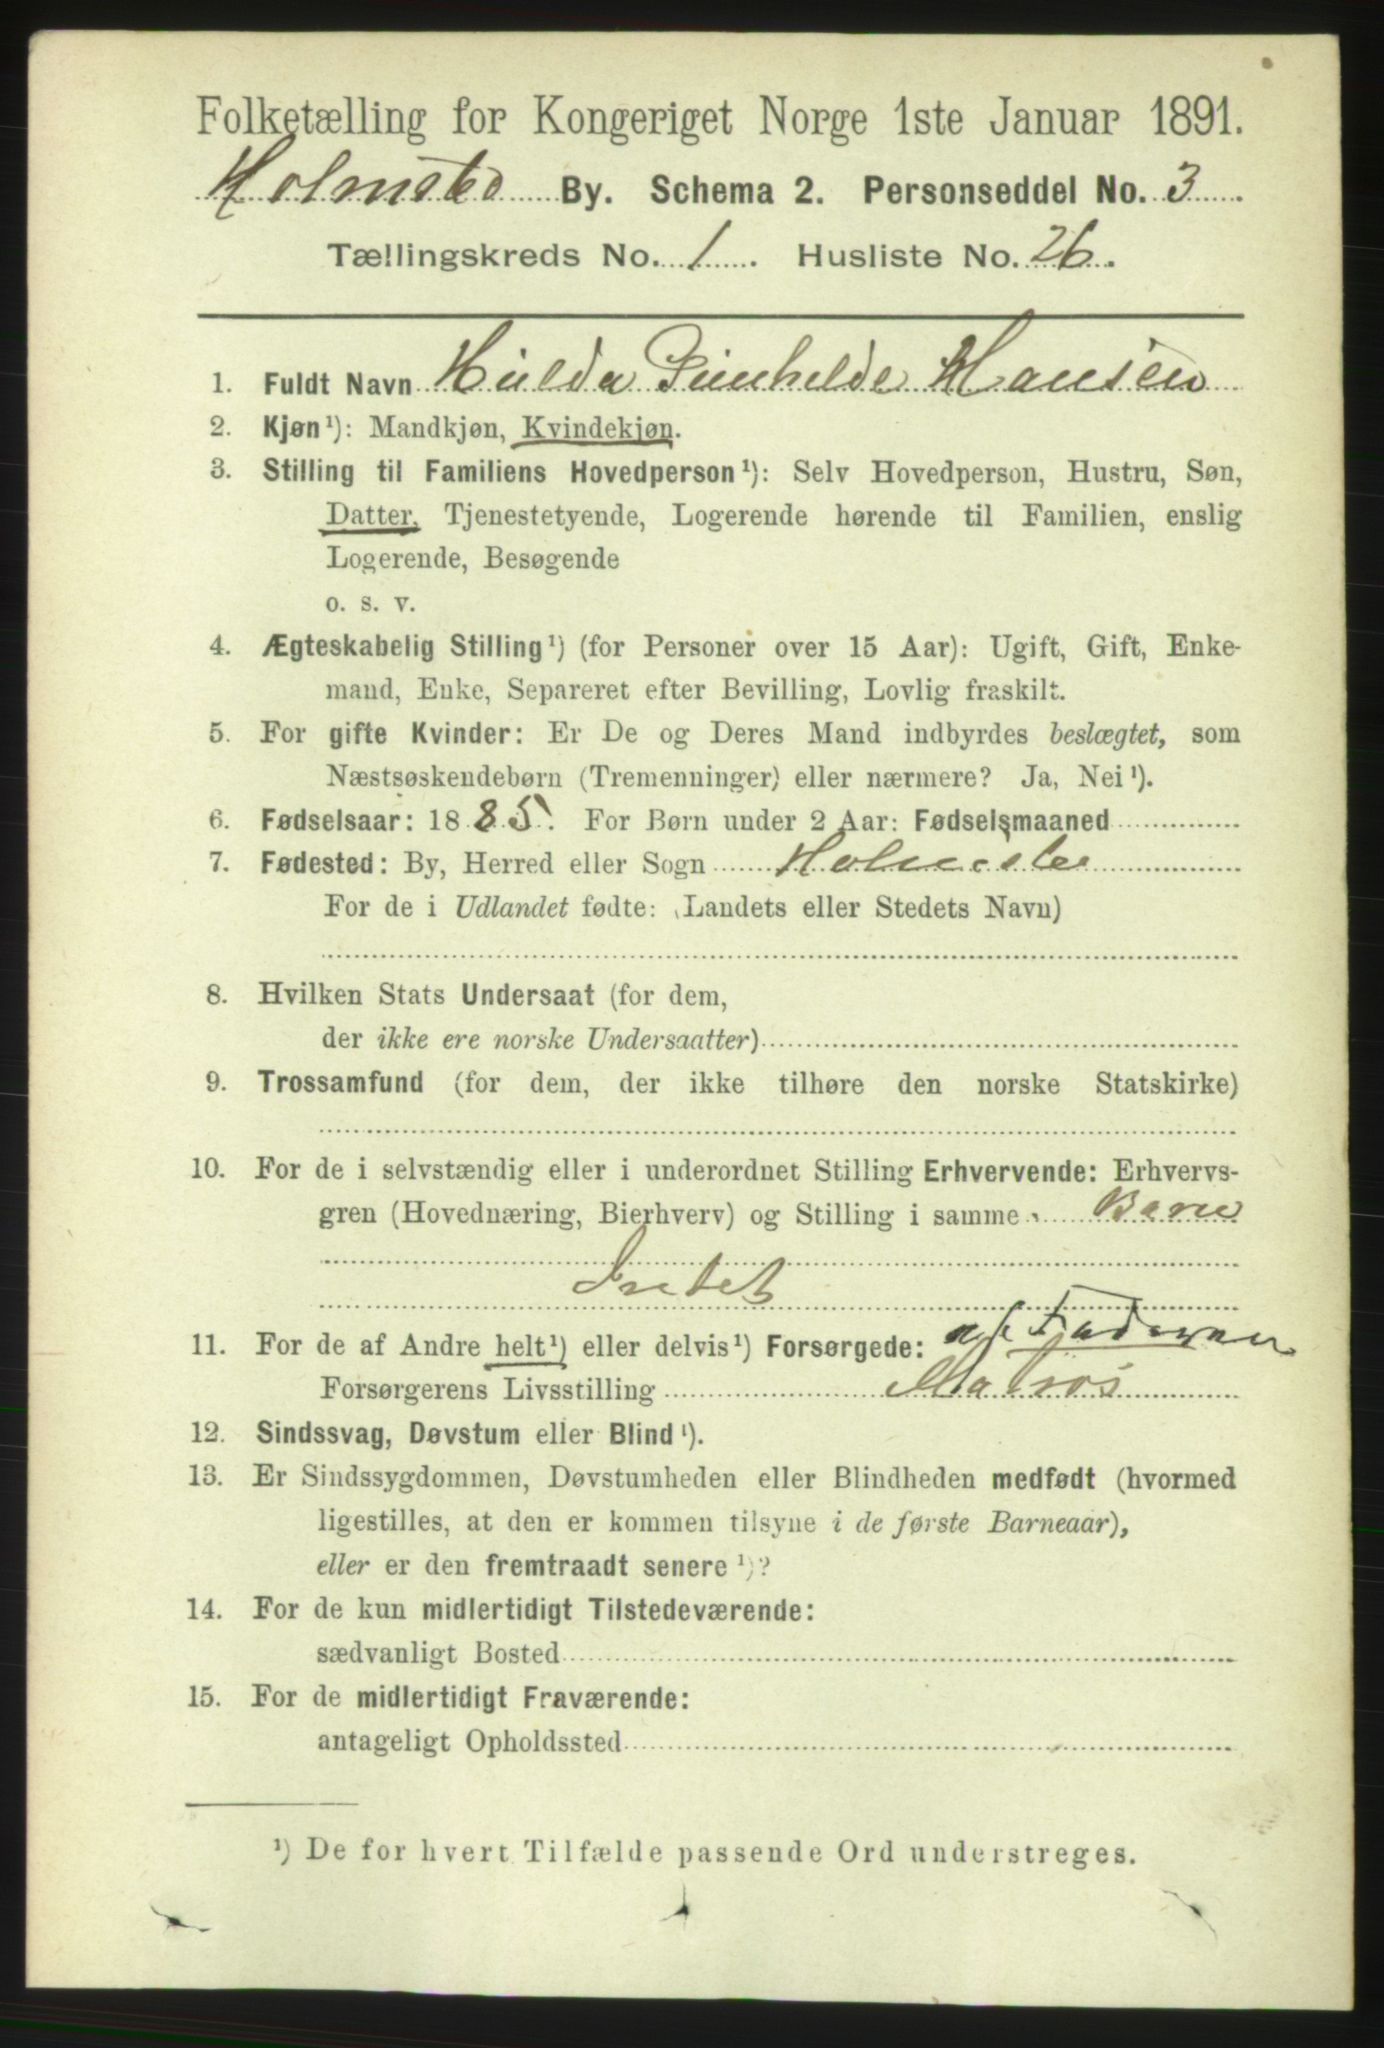 Folketælling for Kongeriget Norge 1ste Januar 1891.
Holmsbo By. Schema 2. Personseddel No. 3.
Tællingskreds No. 1. Husliste No. 26.
1. Fuldt Navn Hulda Hansen
2. Kjøn¹): Mandkjøn, Kvindekjøn.
3. Stilling til Familiens Hovedperson¹): Selv Hovedperson, Hustru, Søn,
Datter, Tjenestetyende, Logerende hørende til Familien, enslig
Logerende, Besøgende
o. s. v.
4. Ægteskabelig Stilling¹) (for Personer over 15 Aar): Ugift, Gift, Enke-
mand, Enke, Separeret efter Bevilling, Lovlig fraskilt.
5. For gifte Kvinder: Er De og Deres Mand indbyrdes beslægtet, som
Næstsøskendebørn (Tremenninger) eller nærmere? Ja, Nei¹).
6. Fødselsaar: 1885. For Børn under 2 Aar: Fødselsmaaned
7. Fødested: By, Herred eller Sogn Holmsbo
For de i Udlandet fødte: (Landets eller Stedets Navn)
8. Hvilken Stats Undersaat (for dem,
der ikke ere norske Undersaatter)
9. Trossamfund (for dem, der ikke tilhøre den norske Statskirke)
10. For de i selvstændig eller i underordnet Stilling Erhvervende: Erhvervs-
gren (Hovednæring, Bierhverv) og Stilling i samme. Barn
Intet
11. For de af Andre helt¹) eller delvis¹) Forsørgede: af Faderen
Forsørgerens Livsstilling Matros
12. Sindssvag, Døvstum eller Blind¹).
13. Er Sindssygdommen, Døvstumheden eller Blindheden medfødt (hvormed
ligestilles, at den er kommen tilsyne i de første Barneaar),
eller er den fremtraadt senere¹)?
14. For de kun midlertidigt Tilstedeværende:
sædvanligt Bosted
15. For de midlertidigt Fraværende:
antageligt Opholdssted
¹) De for hvert Tilfælde passende Ord understreges.